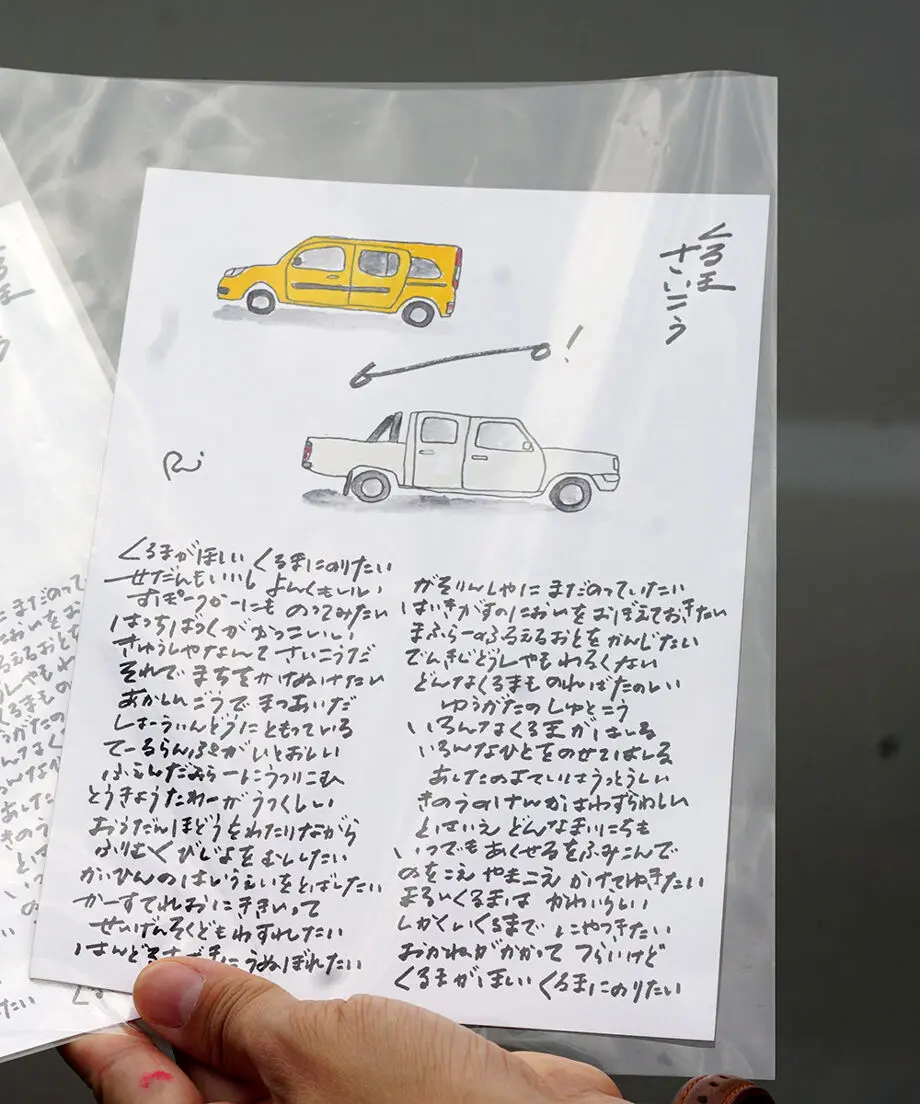 くるま
さいこう
!
くるまがほしい くるまにのりたい
せだんもいいし よんくもいい
すぽーつかーにも のってみたい
はっちばっくが かっこいい
きゅうしゃなんて さいこうだ
それで まちを かけぬけたい
あかしんごうで まつあいだ
しょーうぃんどうに ともっている
てーるらんぷが いとおしい
ふぇんだみらーに うつりこむ
とうきょうたわーが うつくしい
おうだんほどうを わたりながら
ふりむく びじょを むししたい
かいひんの はいうぇいを とばしたい
かーすてれおに ききいって
せいげんそくども わすれたい
はんどるさばきに うぬぼれたい
がそりんしゃに まだのっていたい
はいきがすの においを おぼえておきたい
まふらーの ふるえるおとを かんじたい
でんきじどうしゃも わるくない
どんなくるまも のればたのしい
ゆうがたの しゅとこう
いろんなくるまが はしる
いろんなひとを のせてはしる
あしたのよていは うっとうしい
きのうのけんかは わずらわしい
とはいえ どんなまいにちも
いつでも あくせるを ふみこんで
のをこえ やまこえ かけてゆきたい
まるいくるまは かわいらしい
しかくいくるまで にやつきたい
おかねが かかって つらいけど
くるまがほしい くるまにのりたい